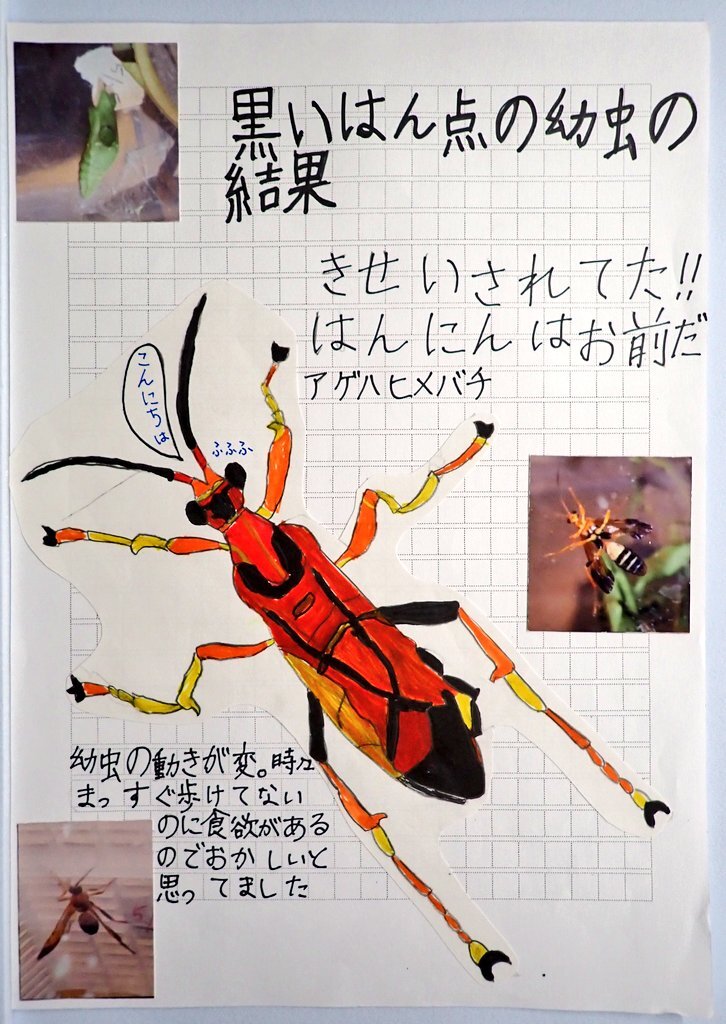 黒いはん点の幼虫の
結果
きせいされてた!!
はんにんはお前だ
アゲハヒメバチ
こんにちは
ふふふ
幼虫の動きが変。時々
まっすぐ歩けてない
のに食欲がある
のでおかしいと
思ってました